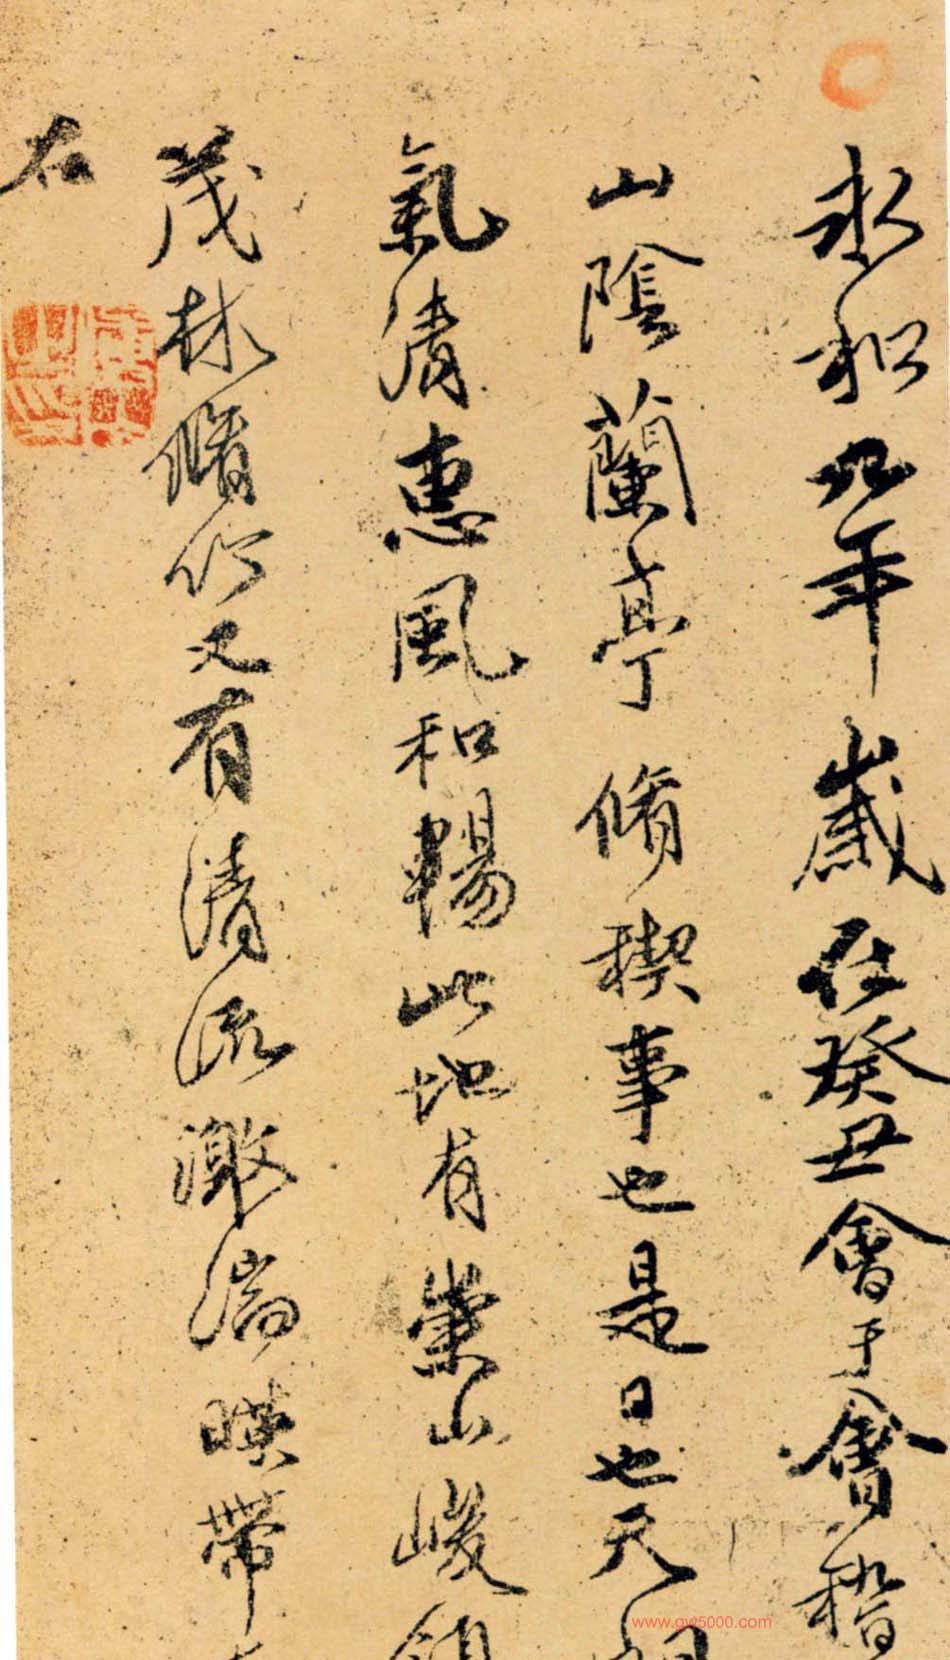 永和九年歲在癸丑會于會稽
山陰蘭亭脩稧事也是日也天
氣清惠風和暢此地有崇山峻領
茂林脩竹又有清流激湍暎帶
右
www.gw5000.com